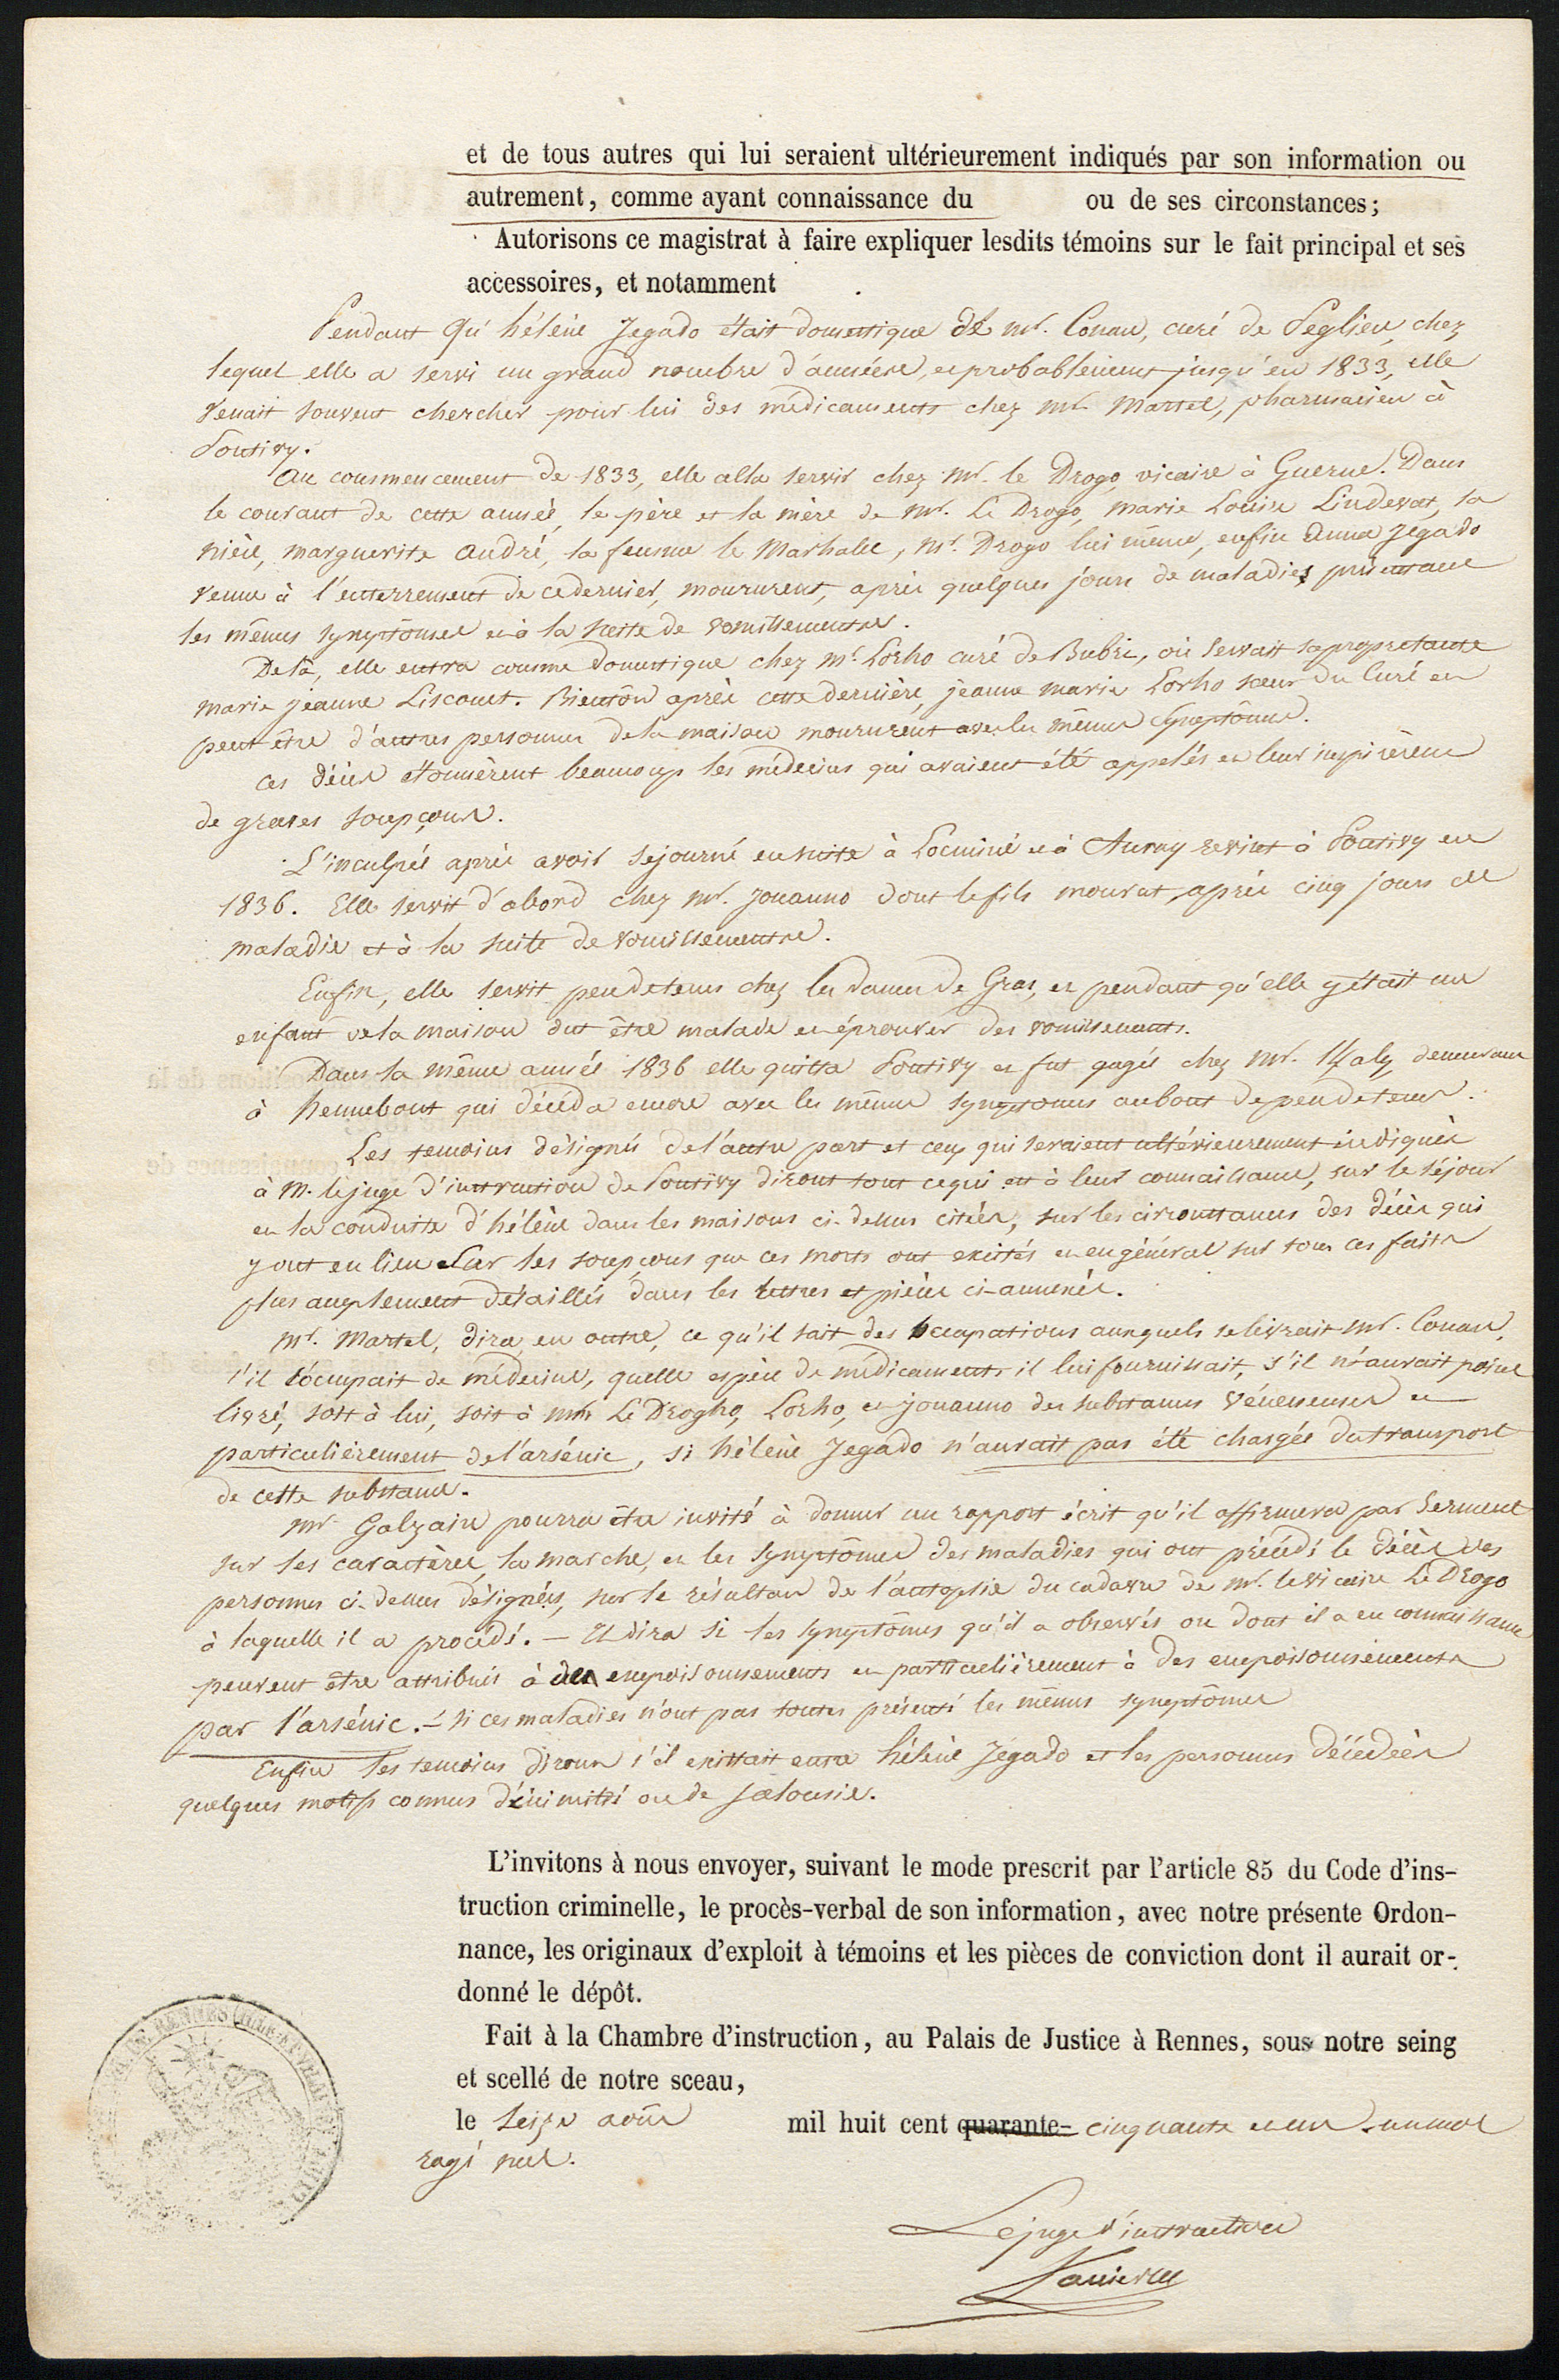 et de tous autres qui lui seraient ultérieurement indiqués par son information ou
autrement, comme ayant connaissance du ou de ses circonstances;
Autorisons ce magistrat à faire expliquer lesdits témoins sur le fait principal et ses
accessoires, et notamment
Pendant qu'hélène Jegado était domestique de mr. Conan, curé de Séglien, chez
lequel elle a servi un grand nombre d'années, et probablement jusqu'en 1833, elle
venait souvent chercher pour lui des médicaments chez mr. Martel, pharmacien à
Pontivy.
Au commencement de 1833, elle alla servir chez mr. le Drogo, vicaire à Guerne. Dans
le courant de cette année, le père et la mère de mr. Le Drogo, marie Louise Lindevat, sa
nièce, marguerite André, la femme le Marhalec, mr. Drogo lui même, enfin Anna Jegado
venue à l'enterrement de ce dernier, moururent, après quelques jours de maladies présentant
les mêmes symptômes et à la suite de vomissements.
De là, elle entra comme domestique chez mr. Lorho curé de Bubri, où servait sa propre tante
marie jeanne Liscouet. Bientôt après cette dernière, jeanne marie Lorho sœur du Curé et
peut être d'autres personnes de la maison moururent avec les mêmes symptômes.
ces décès étonnèrent beaucoup les médecins qui avaient été appelés et leur inspirèrent
de graves soupçons.
L'inculpée après avoir séjourné ensuite à Locminé et à Auray revint à Pontivy en
1836. Elle servit d'abord chez mr. Jouanno dont le fils mourut, après cinq jours de
maladie et à la suite de vomissements.
Enfin, elle servit peu de tems chez les dames De Gras, et pendant qu'elle y était un
enfant de la maison dut être malade et éprouver des vomissements.
Dans la même année 1836 elle quitta Pontivy et fut gagée chez mr. Kaly, demeurant
à hennebont qui décéda encore avec les mêmes symptomes au bout de peu de tems.
Les temoins désignés de l'autre part et ceux qui seraient ultérieurement indiqués
à M. le juge d'instruction de Pontivy diront tout ce qui est à leur connaissance, sur le séjour
et la conduite d'hélène dans les maisons ci-dessus citées, sur les circonstances des décès qui
y ont eu lieu sur les soupçons que ces morts ont excités et en général sur tous ces faits
plus amplement détaillés dans les lettres et pièces ci-annexées.
mr. Martel, dira, en outre, ce qu'il sait des occupations auxquels se livrait mr. Conan,
s'il s'occupait de médecine, quelle espèce de médicaments il lui fournissait, s'il n'aurait point
livré, soit à lui, soit à mrs Le Drogho, Lorho, et jouanno des substances vénéneuses et
particulièrement de l'arsénic, si hélène Jegado n'aurait pas été chargée du transport
de cette substance.
mr Galzain pourra être invité à donner un rapport écrit qu'il affirmera par serment
sur les caractères, la marche, et les symptômes des maladies qui ont précédé le décès des
personnes ci-dessus désignées, sur le résultat de l'autopsie du cadavre de mr. le vicaire Le Drogo
à laquelle il a procédé. — Il dira si les symptômes qu'il a observés ou dont il a eu connaissance
peuvent être attribués à des empoisonnements et particulièrement à des empoisonnements
par l'arsénic. — si ces maladies n'ont pas toutes présenté les mêmes symptômes
Enfin les temoins diront s'il existait entre hélène Jégado et les personnes décédées
quelques motifs connus d'inimitié ou de jalousie.
L'invitons à nous envoyer, suivant le mode prescrit par l'article 85 du Code d'ins-
truction criminelle, le procès-verbal de son information, avec notre présente Ordon-
nance, les originaux d'exploit à témoins et les pièces de conviction dont il aurait or-
donné le dépôt.
Fait à la Chambre d'instruction, au Palais de Justice à Rennes, sous notre seing
et scellé de notre sceau,
le seize août mil huit cent quarante- cinquante et un. un mot
rayé nul.
Le juge d'instruction